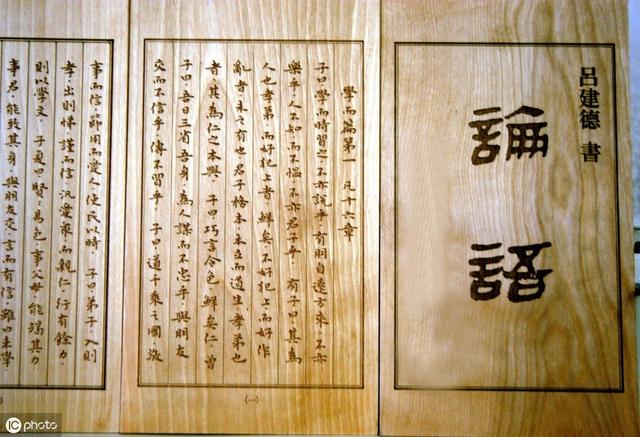 論語
呂建德 書
學而篇第一 凡十六章
子曰學而時習之不亦說乎有朋自遠方來不亦
樂乎人不知而不慍不亦君子乎有子曰其為
人也孝弟而好犯上者鮮矣不好犯上而好作
亂者未之有也君子務本本立而道生孝弟也
者其為仁之本與子曰巧言令色鮮矣仁曾
子曰吾日三省吾身為人謀而不忠乎與朋友
交而不信乎傳不習乎子曰道千乘之國敬
(一)
事而信節用而愛人使民以時子曰弟子入則
孝出則悌謹而信汎愛眾而親仁行有餘力
則以學文子夏曰賢〻易色事父母能竭其力
事君能致其身與朋友交言而有信雖曰未學
IC photo